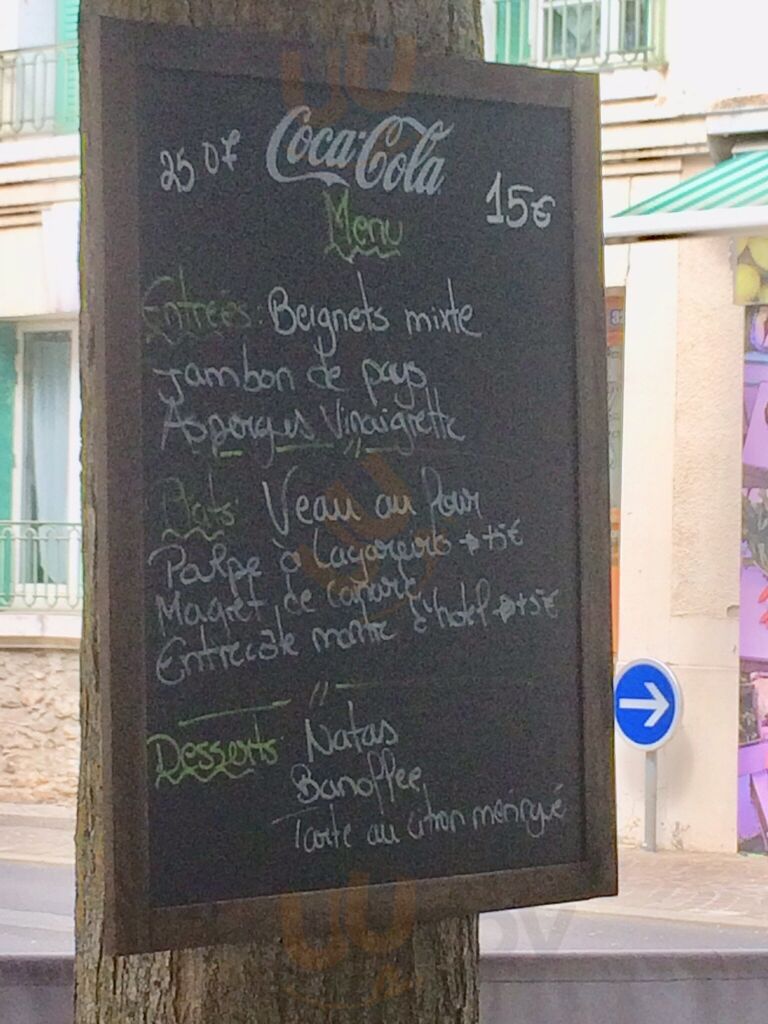 25 07 Coca-Cola 15€
Menu
Entrées: Beignets mixte
Jambon de pays
Asperges Vinaigrette
Plats Veau au four
Poulpe à Lagareiro +5€
Magret de canard
Entrecôte maitre d'hotel +5€
Desserts Natas
Banoffee
Tarte au citron meringué